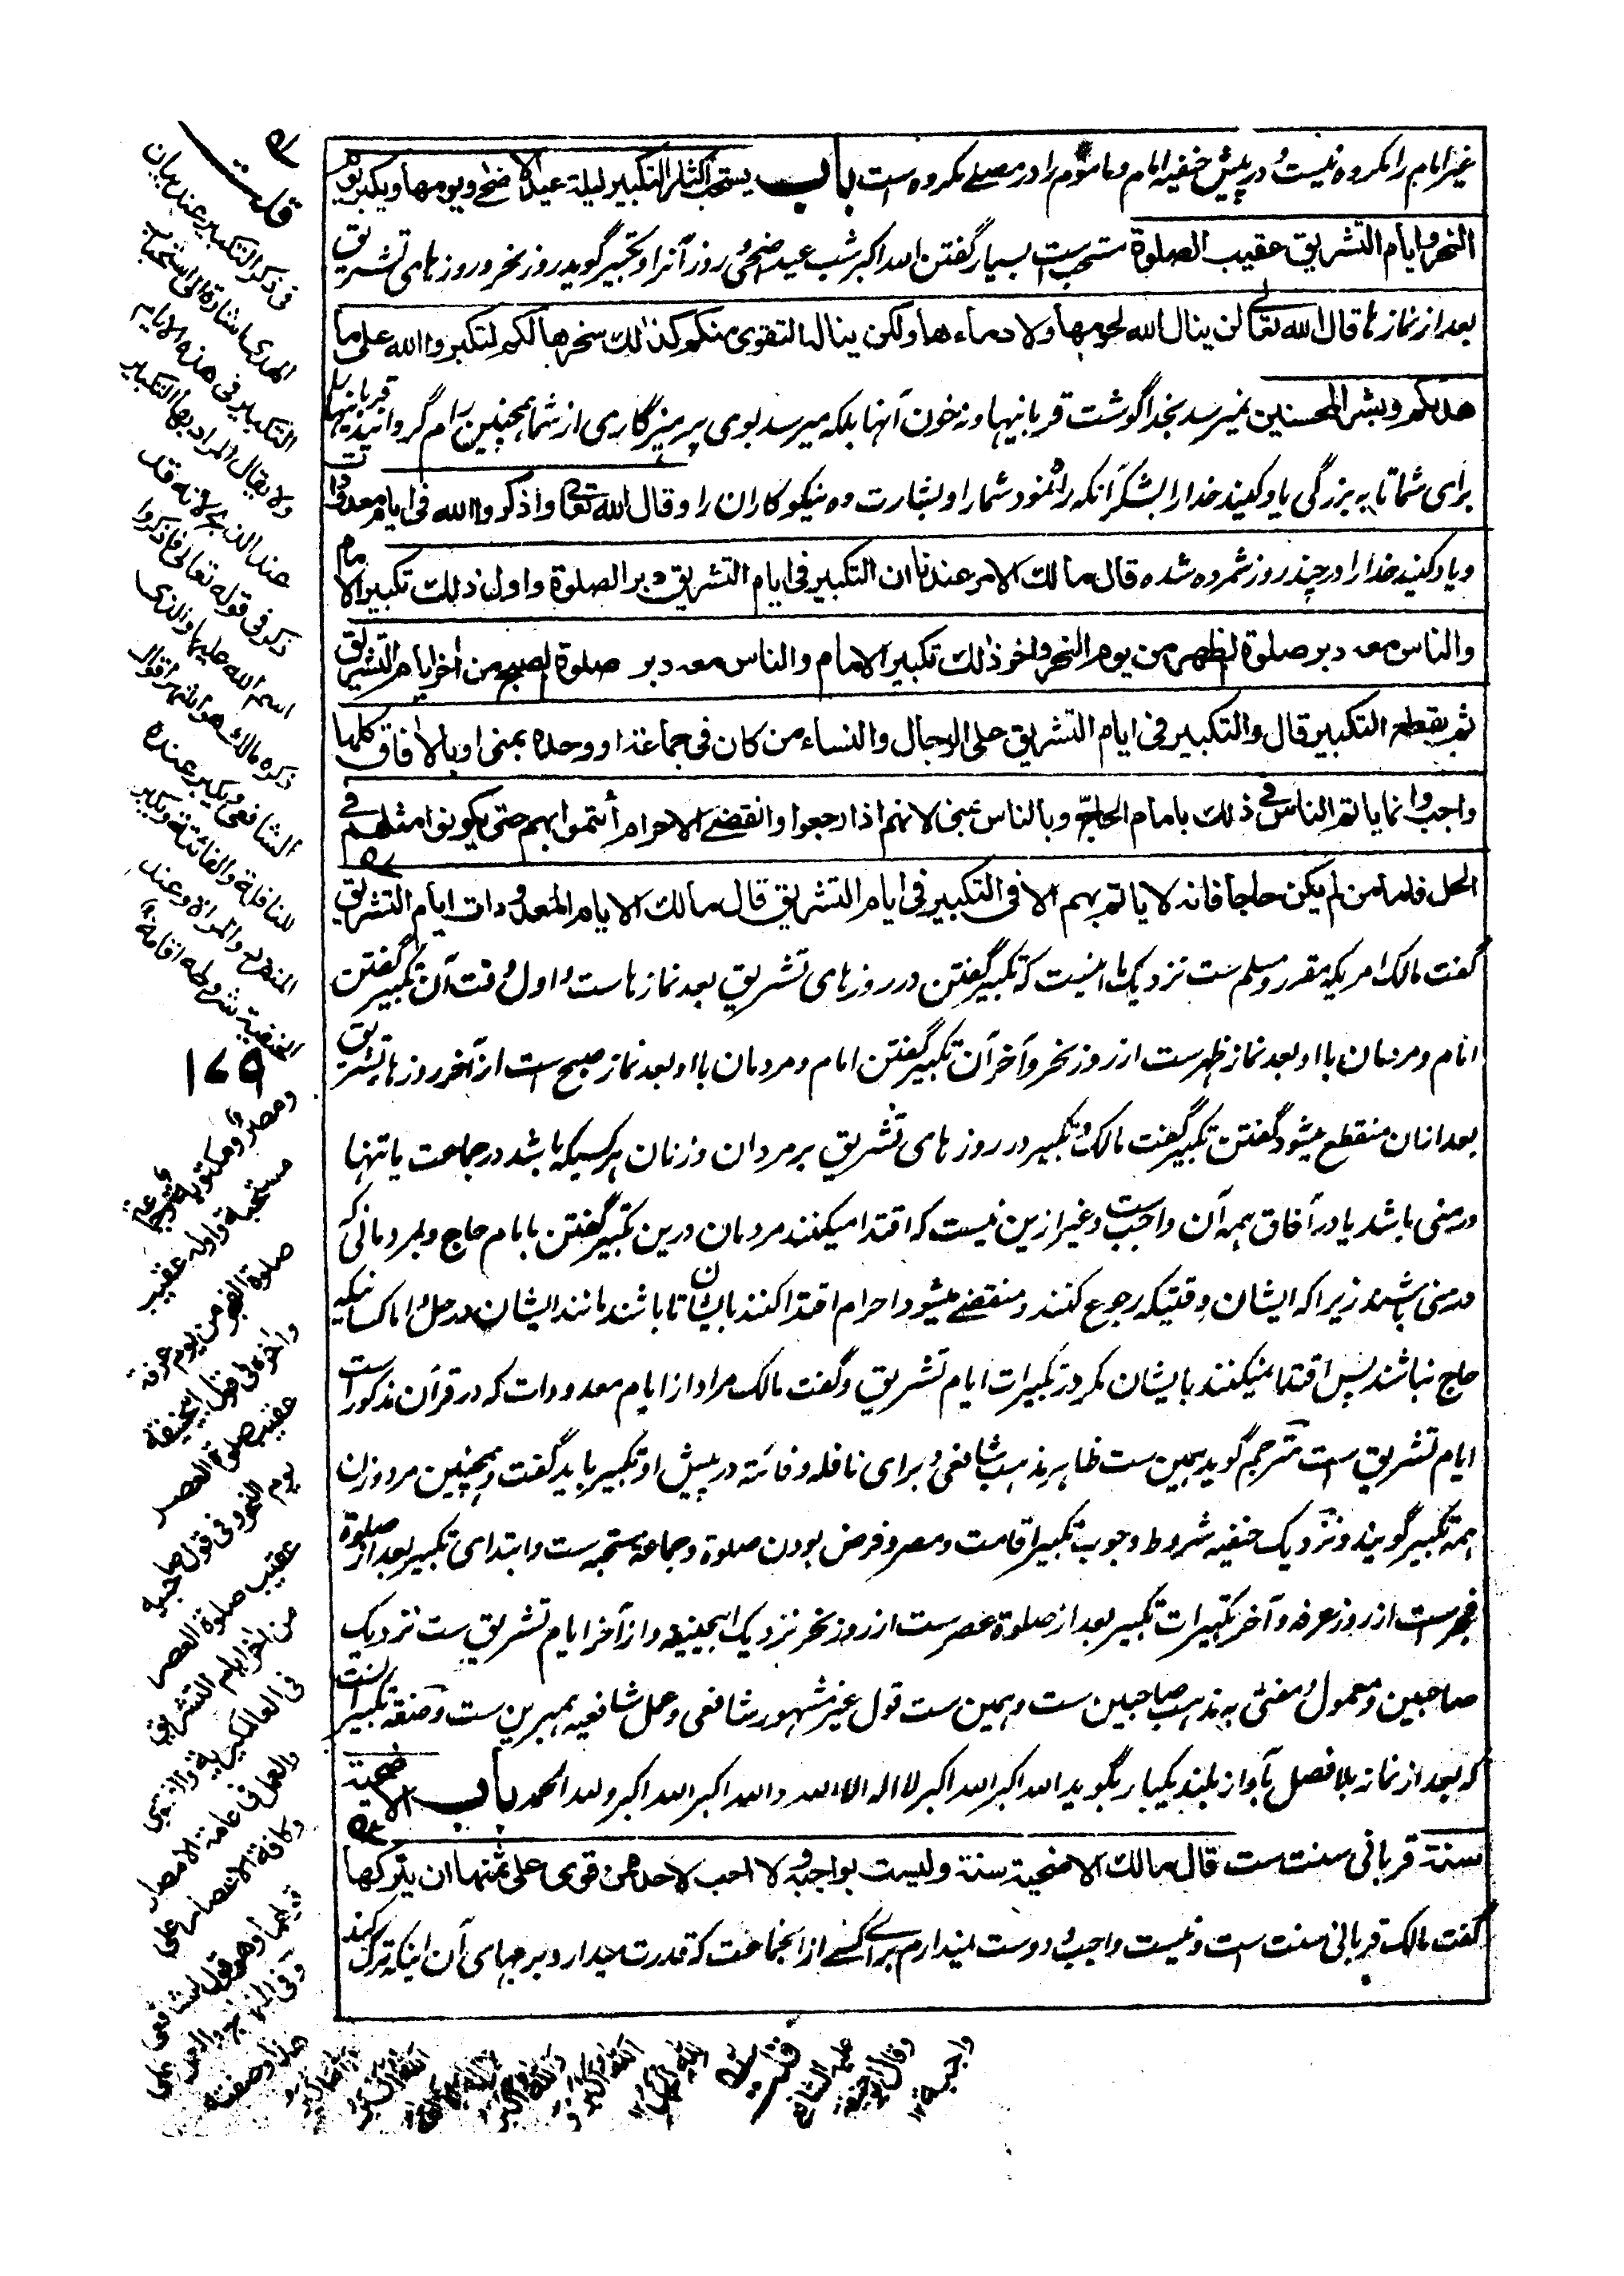 غیر امام را مکروه نیست و در پیش حنفیه امام و ماموم را در مصلے مکروه است باب یستحب اکثار التکبیر لیلة عید الاضحے ویومها ویکبر یوم
النحر وایام التشریق عقیب الصلوة مستحب ست بسیار گفتن الله اکبر شب عید اضحی و روز آنرا و تکبیر گوید روز نحر و روز های تشریق
بعد از نماز ها قال الله تعالی لن ینال الله لحومها ولا دماءها ولکن یناله التقوی منکم کذلک سخرها لکم لتکبروا الله علی ما
هداکم وبشر المحسنین نمیرسد بخدا گوشت قربانیها و نه خون آنها بلکه میرسد بوی پرهیزگاری از شما همچنین رام گردانید قربانیها را
برای شما تا به بزرگی یاد کنید خدا را بشکر آنکه راه نمود شما را و بشارت ده نیکوکاران را وقال الله تعالی واذکروا الله فی ایام معدودات
و یاد کنید خدا را در چند روز شمرده شده قال مالک الامر عندنا ان التکبیر فی ایام التشریق دبر الصلوة واول ذلک تکبیر الامام
والناس معه دبر صلوة الظهر من یوم النحر واخر ذلک تکبیر الامام والناس معه دبر صلوة الصبح من اخر ایام التشریق
ثم یقطع التکبیر قال والتکبیر فی ایام التشریق علی الرجال والنساء من کان فی جماعة او وحده بمنی او بالافاق کلها
واجب وانما یاتم الناس فی ذلک بامام الحاج وبالناس بمنی لانهم اذا رجعوا وانقضے الاحرام أتموا بهم حتی یکونوا مثلهم فی
الحل فاما من لم یکن حاجا فانه لا یاتم بهم الا فی التکبیر فی ایام التشریق قال مالک الایام المعدودات ایام التشریق
گفت مالک امریکه مقرر و مسلم ست نزدیک ما اینست که تکبیر گفتن در روز های تشریق بعد نماز ها ست و اول وقت آن تکبیر گفتن
امام و مردمان با او بعد نماز ظهر ست از روز نحر و آخر آن تکبیر گفتن امام و مردمان با او بعد نماز صبح است از آخر روز ها تشریق
بعد از ان منقطع میشود گفتن تکبیر گفت مالک و تکبیر در روز های تشریق بر مردان و زنان هر کسیکه باشد در جماعت یا تنها
در منی باشد یا در آفاق همه آن واجب ست و غیر ازین نیست که اقتدا میکنند مردمان درین تکبیر گفتن با امام حاج و بمردمانی که
در منی باشند زیرا که ایشان وقتیکه رجوع کنند و منقضے میشود احرام اقتدا کنند بایشان تا باشند مانند ایشان در حل و اما کسانیکه
حاج نباشند پس اقتدا نمیکنند بایشان مگر در تکبیرات ایام تشریق و گفت مالک مراد از ایام معدودات که در قرآن مذکور است
ایام تشریق ست مترجم گوید همین ست ظاهر مذهب شافعی و برای نافله و فائته در پیش او تکبیر باید گفت و همچنین مرد و زن
همه تکبیر گویند و نزدیک حنفیه شروط وجوب تکبیر اقامت و مصر و فرض بودن صلوة و جماعة مستحبه ست و ابتدای تکبیر بعد از صلوة
فجر ست از روز عرفه و آخر تکبیرات تکبیر بعد از صلوة عصر ست از روز نحر نزدیک ابیحنیفه و از آخر ایام تشریق ست نزدیک
صاحبین و معمول و مفتی به مذهب صاحبین ست و همین ست قول غیر مشهور شافعی و عمل شافعیه بهمین ست و صفة تکبیر آنست
که بعد از نماز بلا فصل بآواز بلند یکبار بگوید الله اکبر الله اکبر لا اله الا الله والله اکبر الله اکبر ولله الحمد باب الاضحیة
سنة قربانی سنت ست قال مالک الاضحیة سنة ولیست بواجبة ولا احب لاحد ممن قوی علی ثمنها ان یترکها
گفت مالک قربانی سنت ست و نیست واجب و دوست نمیدارم براے کسے از انجماعت که قدرت میدارد بر بهای آن اینکه ترک کند
قلت
فی ذکر التکبیر عند بیان
الهدی اشارة الی استحباب
التکبیر فی هذه الایام
ولا یقال المراد بها التکبیر
عند الذبح لانه قد
ذکر فی قوله تعالی فاذکروا
اسم الله علیها والذی
ذکره مالک هو اشهر اقوال
الشافعی ویکبر عنده
للنافلة والفائتة ویکبر
المنفرد والمراة وعند
الحنفیة شروطه اقامة
۱۷۹
ومصر ومکتوبة وجماعة
مستحبة واوله عقیب
صلوة الفجر من یوم عرفة
واخره فی قول ابیحنیفة
عقیب صلوة العصر
یوم النحر وفی قول صاحبیه
عقیب صلوة العصر
من اخر ایام التشریق
فی العالمکیریة والفتوی
والعمل فی عامة الامصار
وکافة الاعصار علی
قولهما وهو قول للشافعی
وفی المنهاج والعمل علی
هذا وصفته
الله اکبر
الله اکبر
علیه الشافعی
وقال ابو حنیفة
واجبة ۱۲